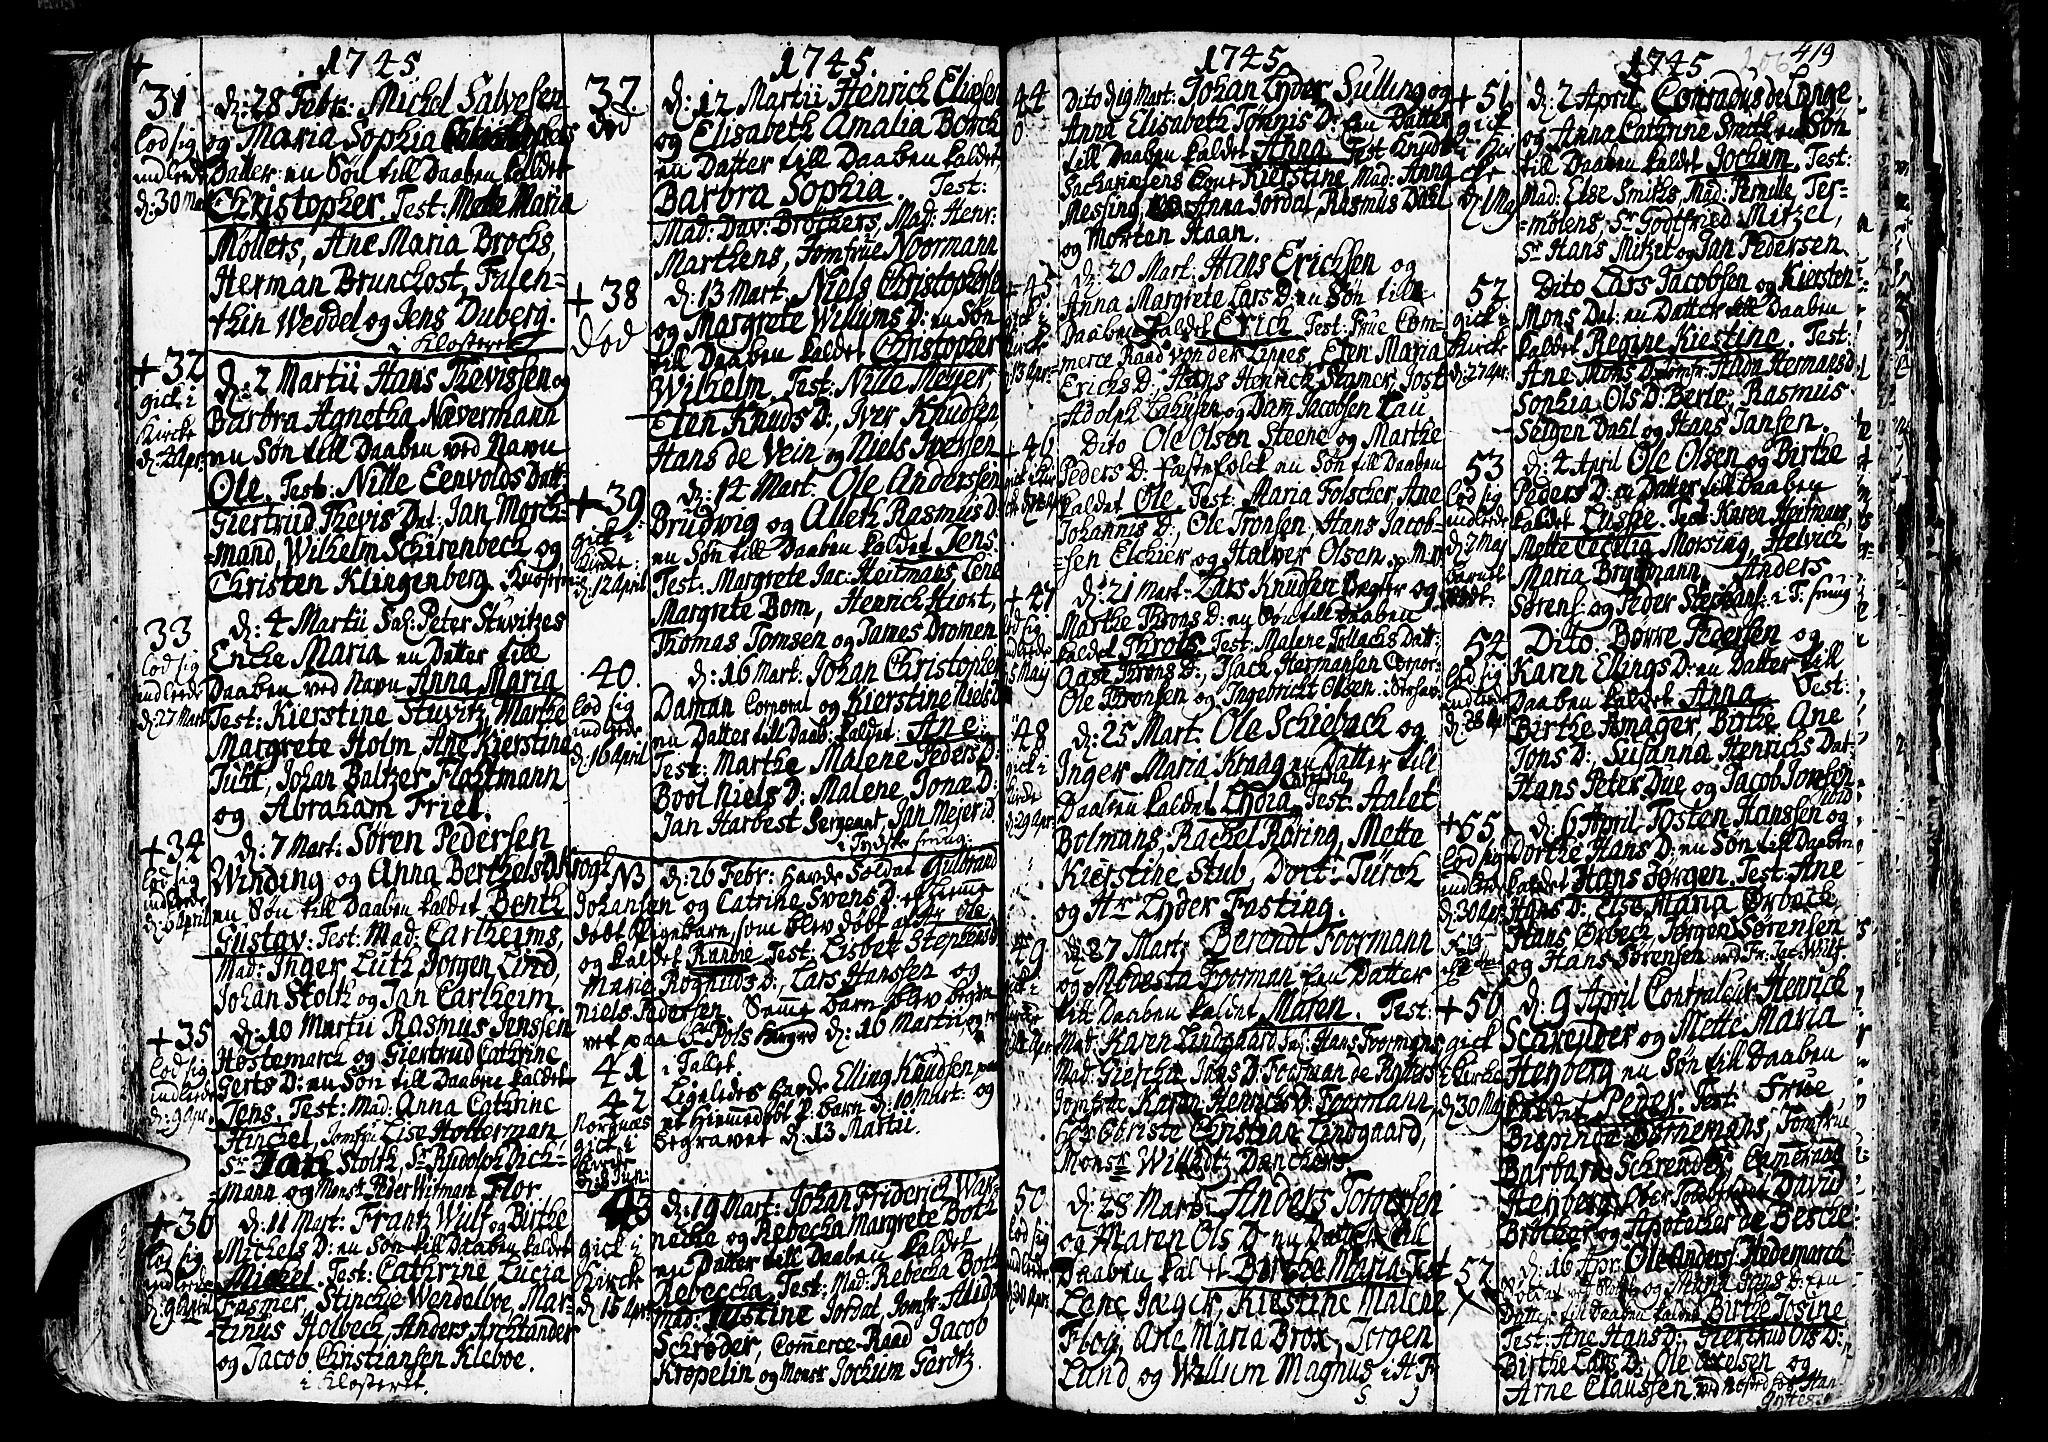 1745
31
lod sig
indlede
d: 30
d: 28 Febr: Michel Salvesen
og Maria Sophia
Datter: en Søn till Daaben kaldet
Christopher. Test: Mette Maria
Møllers, Ane Maria Brochs,
Herman Brunchost, Falen=
thin Weddel og Jens Duberg.
i Klosteret
+ 32
gick i
Kircke
d: 2 Apr:
d: 2 Martii Hans Trevissen og
Barbra Agnetha Nævermann
en Søn till Daaben ved Navn
Ole. Test: Nille Eenvolds Datt:
Giertrud Trevis Dat: Jan Morch=
=mand, Wilhelm Schirenbech og
Christen Klingenberg.
33
Lod sig
indlede
d: 27 Mart
d: 4 Martii Sal: Peter Stuvitzes
Encke Maria en Datter till
Daaben ved Navn Anna Maria
Test: Kierstine Stuvitz, Marthe
Margrete Holm, Ane Kierstine
Tuht, Johan Baltzer Flohtmann
og Abraham Friel.
+ 34
Lod sig
indlede
d: 6 April
d: 7 Mart: Søren Pedersen
Winding og Anna Berthels D: Krogh
en Søn till Daaben kaldet Bentz
Gustav. Test: Mad: Carlheims,
Mad: Inger Luth, Jørgen Lind,
Johan Stoltz og Jan Carlheim.
+ 35
lod sig
indlede
d: 9 Apr:
d: 10 Martii Rasmus Jenssen
Høstemarch og Giertrud Cathrine
Gerts D: en Søn till Daaben kaldet
Jens. Test: Mad: Anna Cathrine
Hinchel, Jomfru Lise Holterman,
Sr Jan Stoltz, Sr Rudolph Dich=
mann og Monsr Peder Witman Flor
+ 36
lod sig
indlede
d: 9 April
d: 11 Mart: Frantz Wulf og Birthe
Michels D: en Søn till Daaben kaldet
Michel. Test: Cathrine Lucia
Fasmer, Stinchie Wendelboe, Mar=
tinus Holbech, Anders Archtander
og Jacob Christiansen Kleboe.
i Klosteret.
1745.
37
død
d: 12 Martii Henrich Eliesen
og Elisabeth Amalia Borch
en Datter till Daaben kaldet
Barbra Sophia. Test:
Mad: Dav: Brøchers, Mad: Henr:
Marthens, Jomfrue Noormann
+ 38
død
d: 13 Mart. Niels Christophers
og Margrete Willums D: en Søn
till Daaben kaldet Christopher
Wilhelm. Test: Nille Meyer
Elen Knuds D:, Iver Knudsen,
Hans de Vein og Niels Iversen
+ 39
gick i
Kircke
d: 12 April
d: 14 Mart. Ole Andersen
Brudwig og Aleth Rasmus D:
en Søn till Daaben kaldet Jens.
Test: Margrete Jac: Heitmans, Lene
Margrete Bom, Henrich Hiort,
Thomas Tomsen og James Dromen
40.
lod sig
indlede
d: 16 April
d: 16 Mart: Johan Christopher
Daman Corporal og Kierstine Niels D
en Datter till Daab: kaldet Ane.
Test: Marthe Malene Peders D:
Bool Niels D: Malene Jonæ D:
Jan Harbest Sergeant, Jan Mejer id
i Tydske
NB
d: 26 Febr: havde Soldat Guldrand
Johansen og Catrine Svens D: et hieme
døbt Pigebarn, som blev døbt af Hr Ole
og kaldet Randie. Test: Lisbet Stephens D
Marie Rognuds D:, Lars Hanssen og
Niels Pedersen. Samme barn blev begra
vet paa St Pols d: 10 Martii, og
i Tallet.
41
42
gick i
Kircke
d: 3 Jun:
Ligeledes havde Elling Knudsen paa
et Hiemmedøbt P. barn d: 10 Mart: og
begravet d: 13 Martii.
43
gick i
Kircke
d: 15 Apr:
d: 19 Mart: Johan Friderich War
neche og Rebecha Margrete Both
en Datter till Daaben kaldet
Rebeccha. Test: Mad: Rebecha Both
Mad: Justine Jordal, Jomfr: Alida
Schrøder, Commerce-Raad Jacob
Krøpelin og Monsr Jochum Gerdtz.
1745
44
Dito d: 19 Mart: Johan Lyder Sulling og
Anna Elisabeth Tømnis D: En Datter
till Daaben kaldet Anna. Test: Knud
Sachariæsens Kierstine, Mad: Anna
Mesing, Anna Jordal, Rasmus Dahl
og Morten Haan.
+ 45
gick i
Kircke
d: 13 Apr:
d: 20 Mart: Hans Erichsen og
Anna Margrete Lars D: en Søn till
Daaben kaldet Erich. Test: Frue Com=
merce Raad von der Lippes, Elen Maria
Erichs D:, Hans Henrich Stamer, Jost
Adolph Lahusen og Dam Jacobsen Lau.
+ 46
Dito Ole Olsen Steene og Marthe
Peders D: Fæstefolck en Søn till Daaben
kaldet Ole. Test: Maria Folscher, Ane
Johannis D:, Ole Tronsen, Hans Jacob=
=sen Elchier og Halver Olsen
+ 47
lod sig
indlede
5 May
d: 21 Mart: Lars Knudsen Vegter og
Marthe Throns D: en Søn till Daaben
kaldet Throls. Test: Malene Tollachs Datt:
Oase Throns D:, Isach Hermansen Corpor:
Ole Thronsen og Ingebricht Olsen
+ 48
gick i
Kircke
d: 29 Apr:
d: 25 Mart: Ole Schiebach og
Inger Maria Kraag en Datter till
Cathrine
Daaben kaldet Lydia. Test: Aalet
Bolmans, Rachel Røring, Mette
Kierstine Stub, Doct: Türch
og Hr: Lyder Fasting.
49
gick i
Kircke
d: 27 Mart: Berendt Foormann
og Modesta Foorman En Datter
till Daaben kaldet Maren. Test:
Mad: Karen Lindgaard Sal: Hans Foormans,
Mad: Giesche Jans D: Foorman de Ryters
Jomfrue Karen Henrichs D: Foormann,
Christe Christian Lindgaard,
Monsr Willhitz Danchers.
50
lod sig
indlede
d: 30 Apr:
d: 28 Mart: Anders Torgersen
og Maren Ols D: en Datter till
Daaben kaldet Birthe Maria. Test
Lene Jæger, Kiestine Malene
Floy, Ane Maria Brox, Jørgen
Lund og Willum Magnus
419
1745
+ 51
gick
i Kir
cke
d: 1 May
d: 2 April Conradus de Lange
og Anna Cathrine Smith en Søn
till Daaben kaldet Jochum. Test:
Mad: Else Smiths, Mad: Pernille Ter=
=mølens, Sr Godtfried Mitzel,
Sr Hans Mitzel og Jan Pedersen.
52
gick i
Kircke
d: 27 Apr:
Dito Lars Jacobsen og Kiersten
Mons Dat: en Datter till Daaben
kaldet Regine Kiestine. Test:
Ane Mons D: Jomfr: Hermans D
Sophia Ols D: Berle, Rasmus
Selgen Dahl og Hans Jansen.
53
lod sig
indlede
d: 7 May
d: 4 April Ole Olsen og Birthe
Peders D: en Datter till Daaben
kaldet. Test: Karen Hartmans,
Mette Cecelia Morsing, Helvich
Maria Brygmann, Anders
Sørens: og Peder Stephans: i T:
54
lod sig
indlede
d: 28 Apr
Dito Børre Pedersen og
Karen Ellings D: en Datter till
Daaben kaldet Anna. Test:
Birthe Amager, Birthe Ane
Jons D: Susanna Henrichs Dat:
Hans Peter Due og Jacob Jonsen
+ 55
lod sig
indlede
d: 30 Apr
d: 6 April Tosten Hanssen og
Dorthe Hans D: en Søn till Daaben
kaldet Hans Jørgen. Test: Ane
Hans D: Else Maria Ørbech,
Hans Ørbech, Jørgen Sørensen
og Hans Sørensen
+ 56
gick
i Kircke
d: 30 May
d: 9 April Contraleur Henrich
Schreuder og Mette Maria
Heyberg en Søn till Daaben
kaldet Peder. Test: Frue
Bispinde Bornemans, Jomfrue
Barbara Schreuder, Cameraad
Heyberg, David
Brøcher og Apotecher de Besche
57
d: 16 Apr: Ole Anders: Hedemarch
Soldat og Anna Jans D: En
Datter till Daaben kaldet Birthe Josine
Test: Ane Hans D: Giertrud Ols D:
Dirthe Lars D: Ole Oxelsen og
Arne Claussen